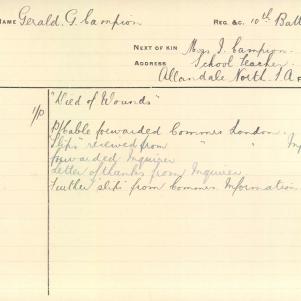 NAME Gerald. G. Campion
REG. &C. 10th Batt
NEXT OF KIN Mrs J. Campion.
ADDRESS School Teacher.
Allandale North. S A
1/P "Died of Wounds"
Cable forwarded Commrs London.
Slips received from " "
forwarded Inquirer
Letter of thanks from Inquirer
Further slips from Commrs. Information